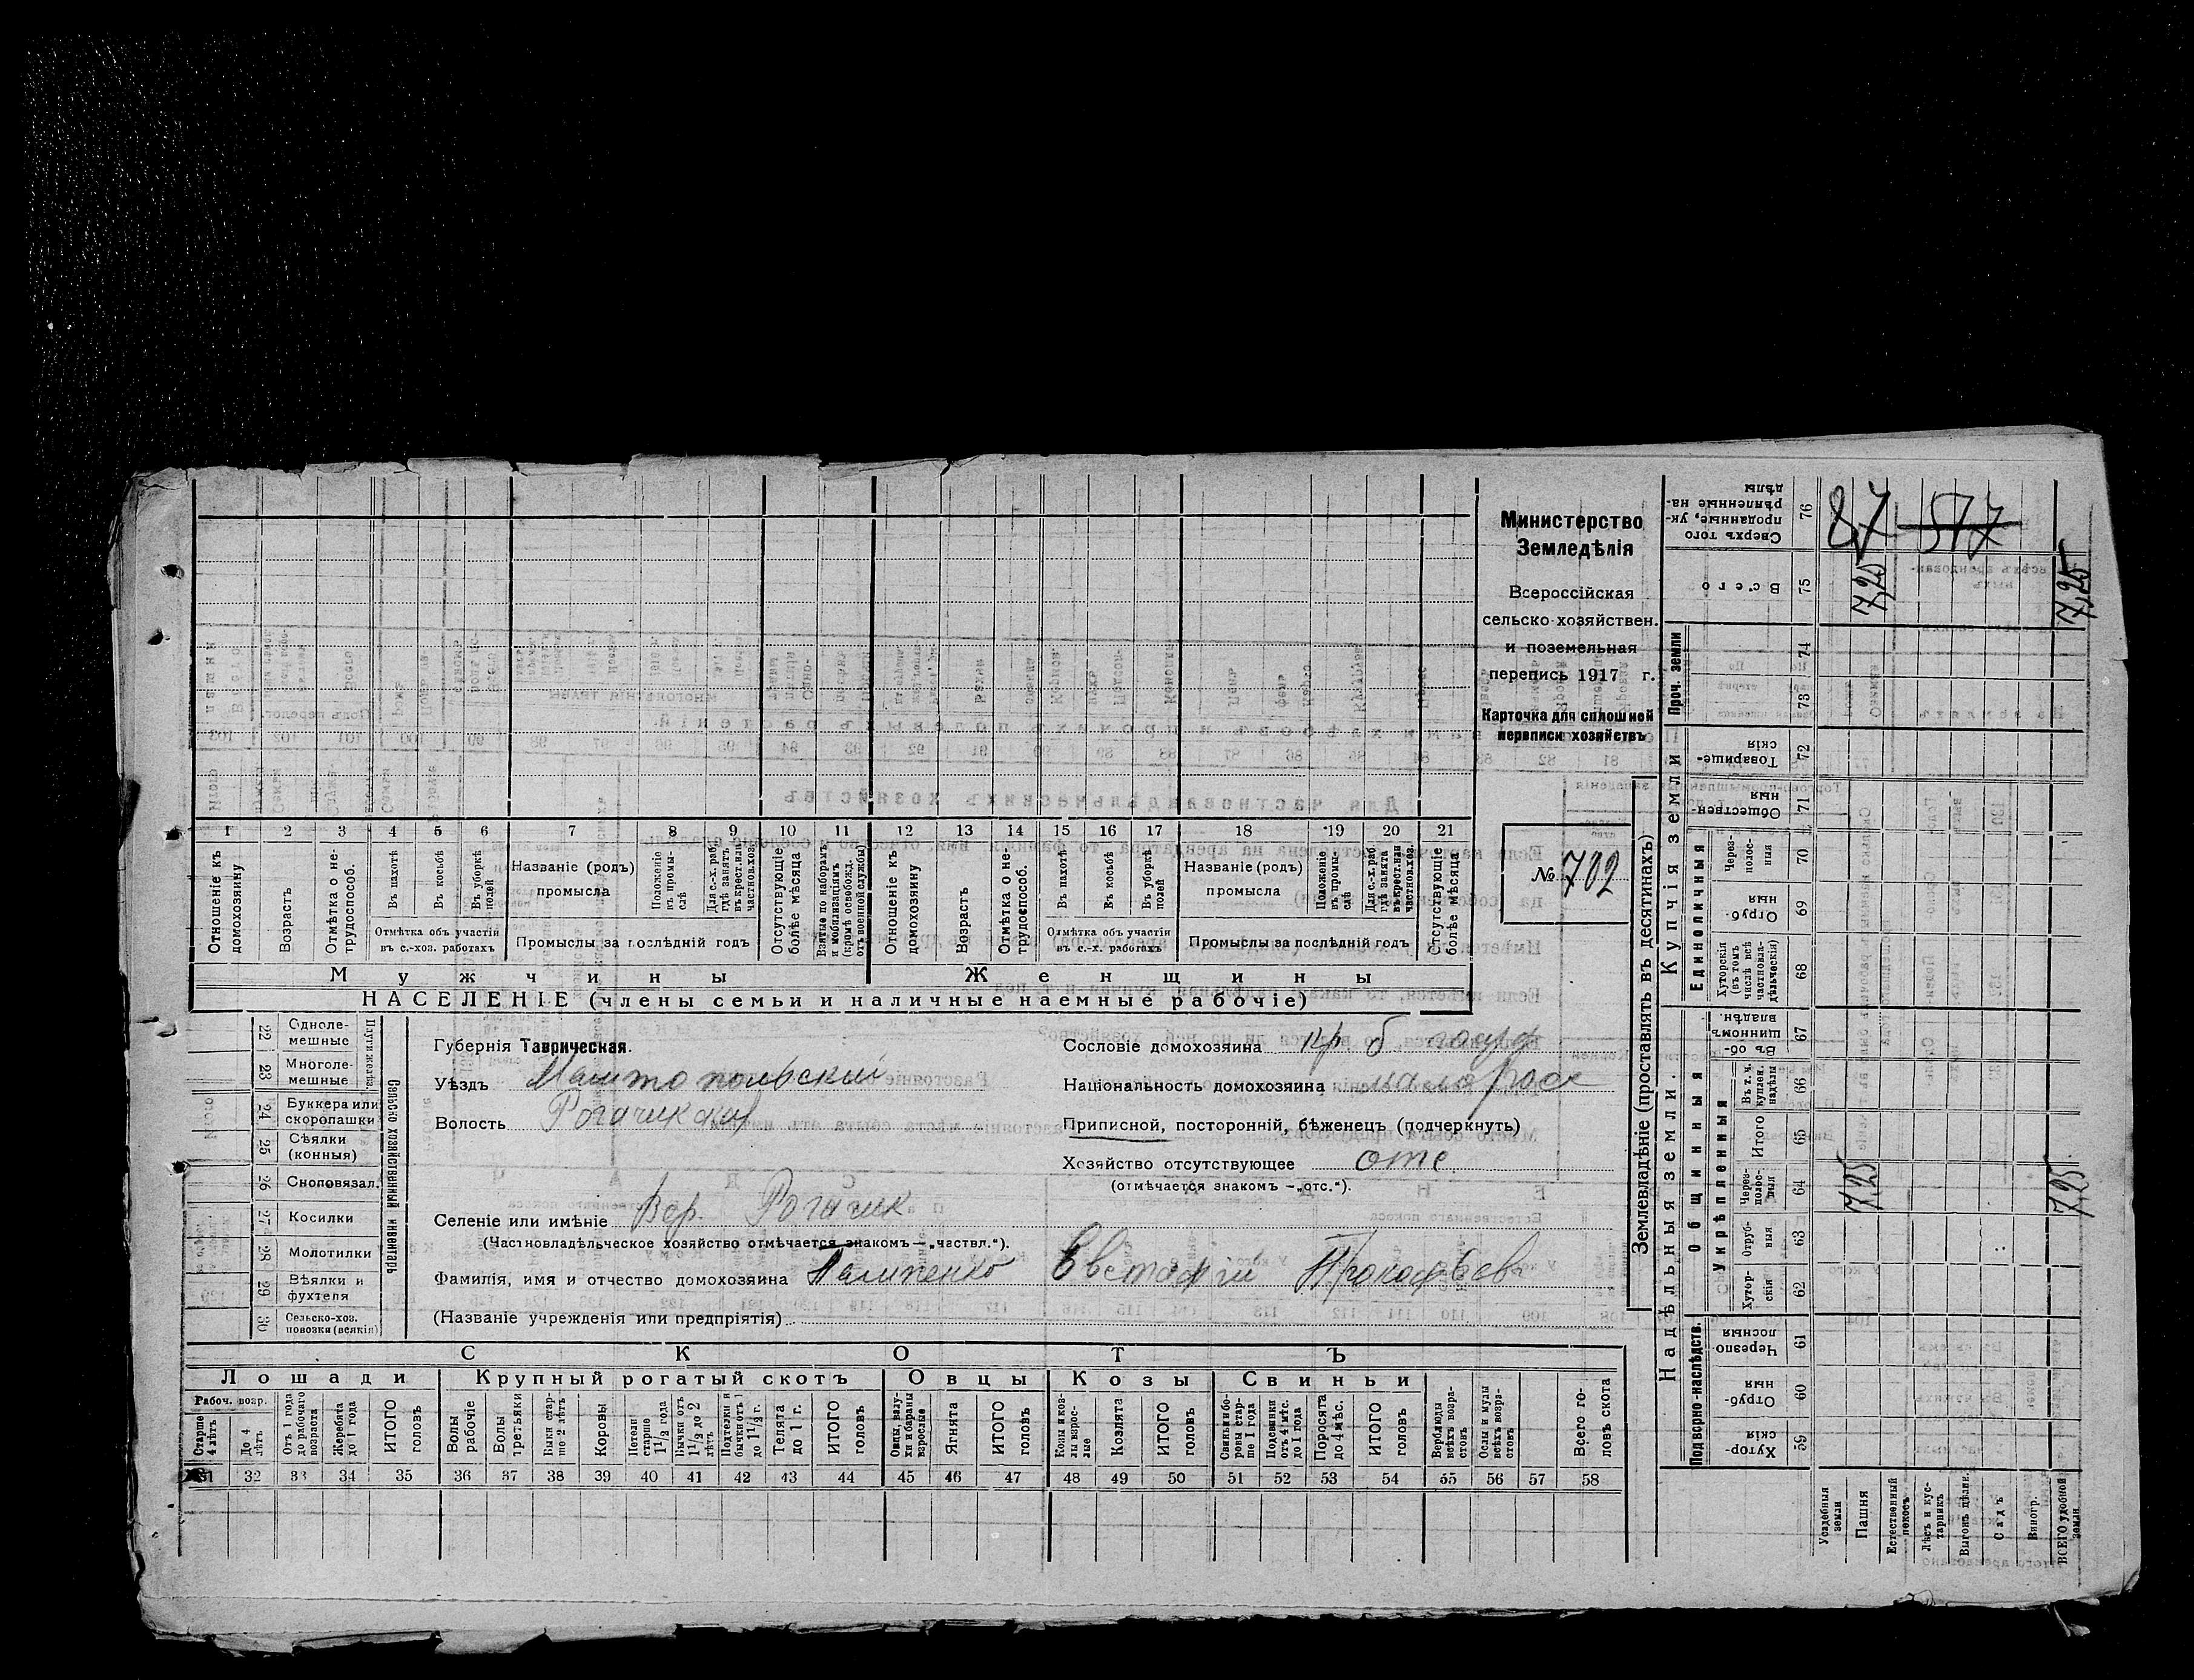 Министерство
Земледѣлія
Всероссійская
сельско-хозяйствен.
и поземельная
перепись 1917 г.
Карточка для сплошной
переписи хозяйствъ
№ 702
1 2 3 4 5 6 7 8 9 10 11 12 13 14 15 16 17 18 19 20 21
Отношеніе къ домохозяину
Возрастъ
Отмѣтка о не-трудоспособ.
Въ пахотѣ
Въ косьбѣ
Въ уборкѣ полей
Отмѣтка объ участіи въ с.-хоз. работахъ
Названіе (родъ) промысла
Положеніе въ промы-слѣ
Для с.-х. раб. гдѣ занятъ въ крест. или частнов. хоз.
Промыслы за послѣдній годъ
Отсутствующіе болѣе мѣсяца
Взятые по наборамъ и мобилизаціямъ (кромѣ освобожд. отъ военной службы)
Отношеніе къ домохозяину
Возрастъ
Отмѣтка о не-трудоспособ.
Въ пахотѣ
Въ косьбѣ
Въ уборкѣ полей
Отмѣтка объ участіи въ с.-х. работахъ
Названіе (родъ) промысла
Положеніе въ промы-слѣ
Для с.-х. раб. гдѣ занята въ крест. или частнов. хоз.
Промыслы за послѣдній годъ
Отсутствующіе болѣе мѣсяца
Мужчины Женщины
НАСЕЛЕНІЕ (члены семьи и наличные наемные рабочіе)
22 Одноле-мешные
23 Многоле-мешные
24 Буккера или скоропашки
25 Сѣялки (конныя)
26 Сноповязал.
27 Косилки
28 Молотилки
29 Вѣялки и фухтеля
30 Сельско-хоз. повозки (всякія)
Сельско хозяйственный инвентарь
Губернія Таврическая.
Уѣздъ Мелитопольскій
Волость Рогачикская
Селеніе или имѣніе Вер. Рогачик
(Частновладѣльческое хозяйство отмѣчается знакомъ—„частвл.“).
Фамилія, имя и отчество домохозяина Палипенко Евстафій Прокофьев
(Названіе учрежденія или предпріятія)
Сословіе домохозяина кр. б
Національность домохозяина малорос
Приписной, посторонній, бѣженецъ (подчеркнуть)
Хозяйство отсутствующее отс
(отмѣчается знакомъ —„отс.“).
СКОТЪ
Лошади Крупный рогатый скотъ Овцы Козы Свиньи
Рабоч. возр.
Старше 4 лѣтъ
До 4 лѣтъ
Отъ 1 года до рабочаго возраста
Жеребята до 1 года
ИТОГО головъ
Волы рабочіе
Волы третьяки
Быки стар-ше 2 лѣтъ
Коровы
Нетели старше 1½ года
Бычки отъ 1½ до 2 лѣтъ
Подтелки и бычки отъ 1 до 1½ г.
Телята до 1 г.
ИТОГО головъ
Овцы, валу-хи и бараны взрослые
Ягнята
ИТОГО головъ
Козы и коз-лы взрос-лые
Козлята
ИТОГО головъ
Свиньи и бо-ровы стар-ше 1 года
Подсвинки отъ 4 мѣс. до 1 года
Поросята до 4 мѣс.
ИТОГО головъ
Верблюды всѣхъ возра-стовъ
Ослы и мулы всѣхъ возра-стовъ
Всего го-ловъ скота
31 32 33 34 35 36 37 38 39 40 41 42 43 44 45 46 47 48 49 50 51 52 53 54 55 56 57 58
Землевладѣніе (проставлять въ десятинахъ)
Надѣльныя земли. Купчія земли Проч. земли
Подворно-наслѣдств. Общинныя Единоличныя
Укрѣпленныя
59 Хутор-скія
60 Отруб-ныя
61 Черезпо-лосныя
62 Хутор-скія
63 Отруб-ныя
64 Через-полос-ныя 7,25 7,25
65 Итого
66 Въ т. ч. куплен. надѣлы
67 Въ об-щинномъ владѣн.
68 Хуторскія (въ томъ числѣ всѣ частновла-дѣльческія)
69 Отруб-ныя
70 Через-полос-ныя
71 Обществен-ныя
72 Товарище-скія
73
74
75 Всего 7,25 7,25
76 Сверхъ того проданные, ук-рѣпленные на-дѣлы
87 517
Усадебныя земли
Пашня
Естественный покосъ
Лѣсъ и кус-тарникъ
Выгонъ цѣлин.
Садъ
Виногр.
ВСЕГО удобной земли